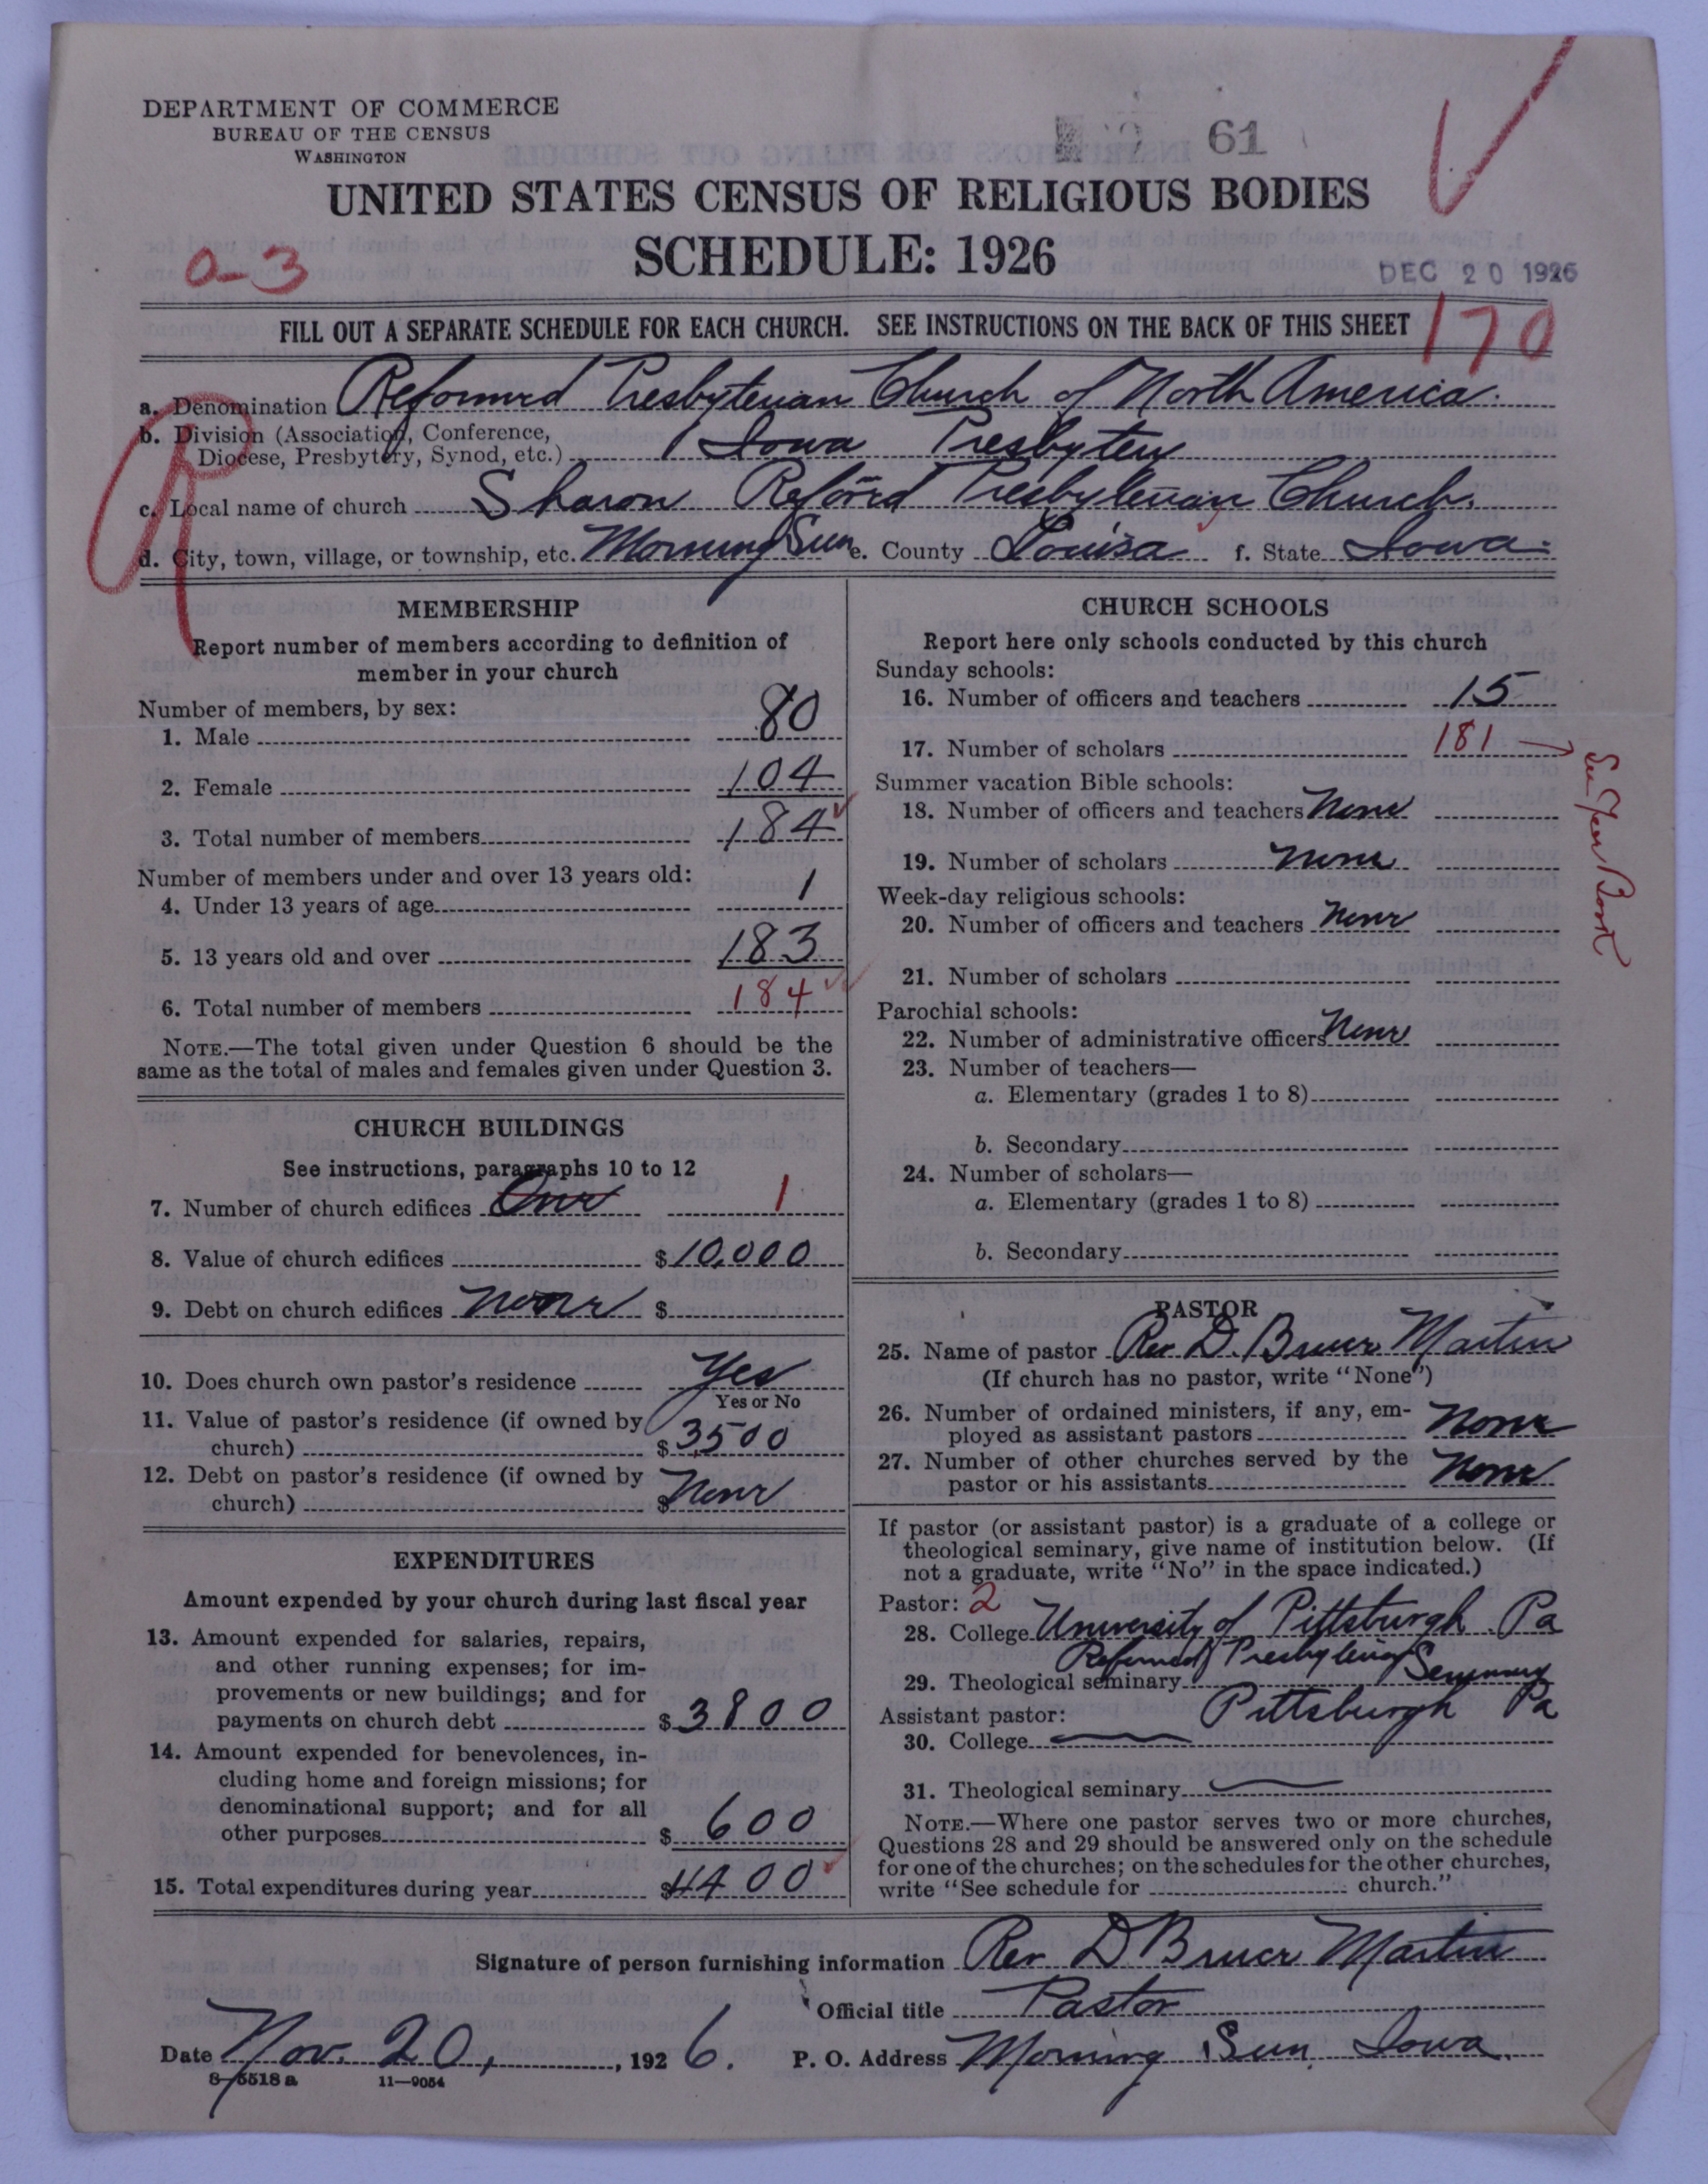 DEPARTMENT OF COMMERCE
BUREAU OF THE CENSUS
WASHINGTON
61
UNITED STATES CENSUS OF RELIGIOUS BODIES
SCHEDULE: 1926
a-3
DEC 20 1926
FILL OUT A SEPARATE SCHEDULE FOR EACH CHURCH. SEE INSTRUCTIONS ON THE BACK OF THIS SHEET
170
R
a. Denomination Reformed Presbyterian Church of North America.
b. Division (Association, Conference, Diocese, Presbytery, Synod, etc.) Iowa Presbytery
c. Local name of church Sharon Reford Presbyterian Church.
d. City, town, village, or township, etc. Morning Sun e. County Louisa f. State Iowa.
MEMBERSHIP
Report number of members according to definition of
member in your church
Number of members, by sex:
1. Male 80
2. Female 104
3. Total number of members 184
Number of members under and over 13 years old:
4. Under 13 years of age 1
5. 13 years old and over 183
6. Total number of members 184
NOTE.—The total given under Question 6 should be the
same as the total of males and females given under Question 3.
CHURCH BUILDINGS
See instructions, paragraphs 10 to 12
7. Number of church edifices One 1
8. Value of church edifices $10,000
9. Debt on church edifices none $
10. Does church own pastor's residence Yes
Yes or No
11. Value of pastor's residence (if owned by
church) $3500
12. Debt on pastor's residence (if owned by
church) $ None
EXPENDITURES
Amount expended by your church during last fiscal year
13. Amount expended for salaries, repairs,
and other running expenses; for im-
provements or new buildings; and for
payments on church debt $3800
14. Amount expended for benevolences, in-
cluding home and foreign missions; for
denominational support; and for all
other purposes $ 600
15. Total expenditures during year $4400
CHURCH SCHOOLS
Report here only schools conducted by this church
Sunday schools:
16. Number of officers and teachers 15
17. Number of scholars 181
See Year Book
Summer vacation Bible schools:
18. Number of officers and teachers None
19. Number of scholars None
Week-day religious schools:
20. Number of officers and teachers None
21. Number of scholars
Parochial schools:
22. Number of administrative officers None
23. Number of teachers—
a. Elementary (grades 1 to 8)
b. Secondary
24. Number of scholars—
a. Elementary (grades 1 to 8)
b. Secondary
PASTOR
25. Name of pastor Rev D. Bruce Martin
(If church has no pastor, write "None")
26. Number of ordained ministers, if any, em-
ployed as assistant pastors None
27. Number of other churches served by the
pastor or his assistants None
If pastor (or assistant pastor) is a graduate of a college or
theological seminary, give name of institution below. (If
not a graduate, write "No" in the space indicated.)
Pastor: 2
28. College University of Pittsburgh Pa
Reformed Presbyterian Seminary
29. Theological seminary
Assistant pastor: Pittsburgh Pa
30. College
31. Theological seminary
NOTE.—Where one pastor serves two or more churches,
Questions 28 and 29 should be answered only on the schedule
for one of the churches; on the schedules for the other churches,
write "See schedule for church."
Signature of person furnishing information Rev D Bruce Martin
Official title Pastor
Date Nov. 20, 1926. P. O. Address Morning Sun, Iowa.
8-5518 a 11-9054